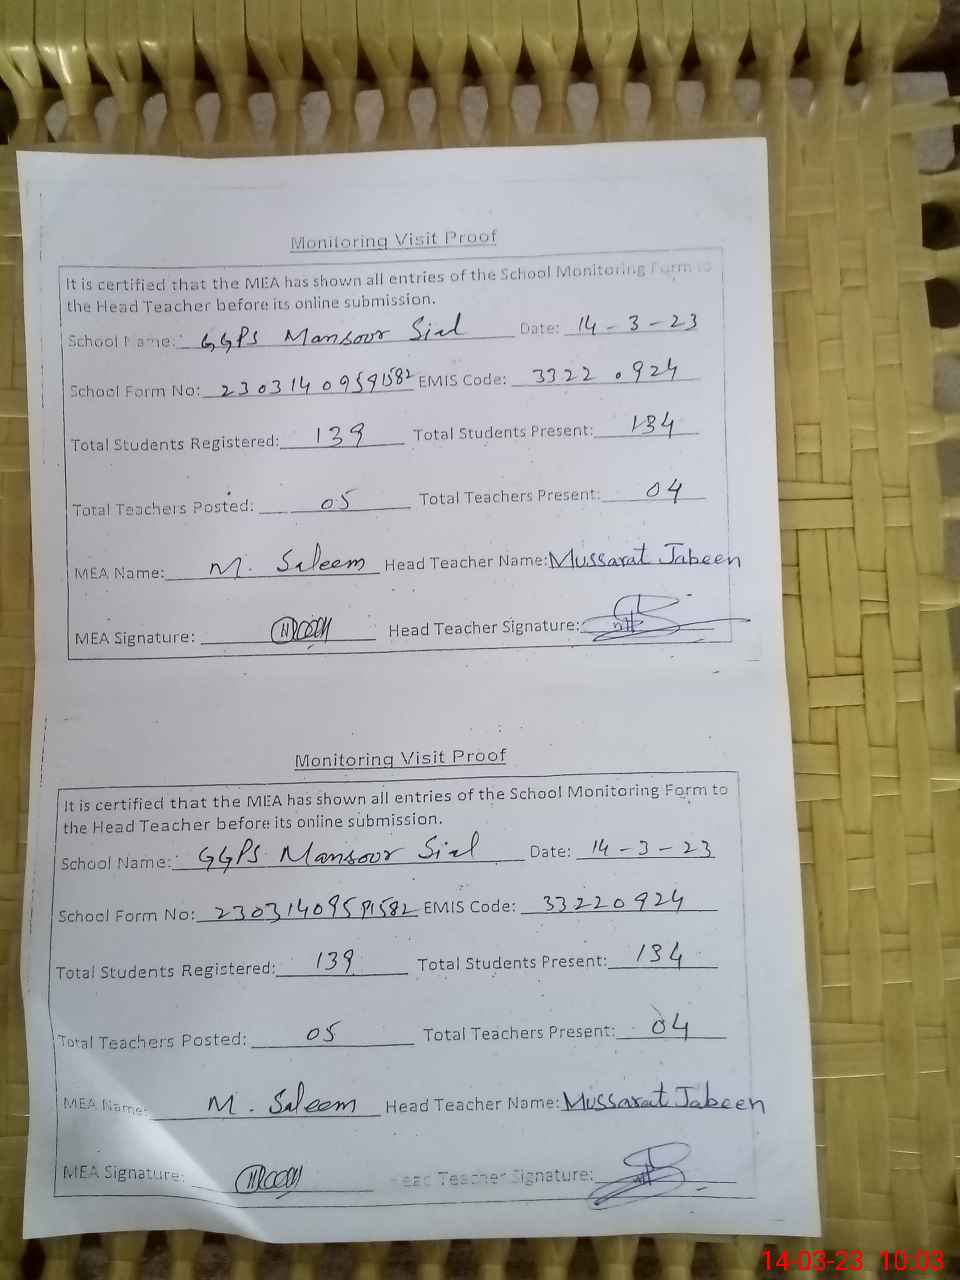 Monitoring Visit Proof
It is certified that the MEA has shown all entries of the School Monitoring Form to
the Head Teacher before its online submission.
School Name: GGPS Mansoor Sial Date: 14-3-23
School Form No: 23031409591582 EMIS Code: 33220924
Total Students Registered: 139 Total Students Present: 134
Total Teachers Posted: 05 Total Teachers Present: 04
MEA Name: M. Saleem Head Teacher Name: Mussarat Jabeen
MEA Signature: Head Teacher Signature:
Monitoring Visit Proof
It is certified that the MEA has shown all entries of the School Monitoring Form to
the Head Teacher before its online submission.
School Name: GGPS Mansoor Sial Date: 14-3-23
School Form No: 23031409591582 EMIS Code: 33220924
Total Students Registered: 139 Total Students Present: 134
Total Teachers Posted: 05 Total Teachers Present: 04
MEA Name: M. Saleem Head Teacher Name: Mussarat Jabeen
MEA Signature: Head Teacher Signature:
14-03-23 10:03